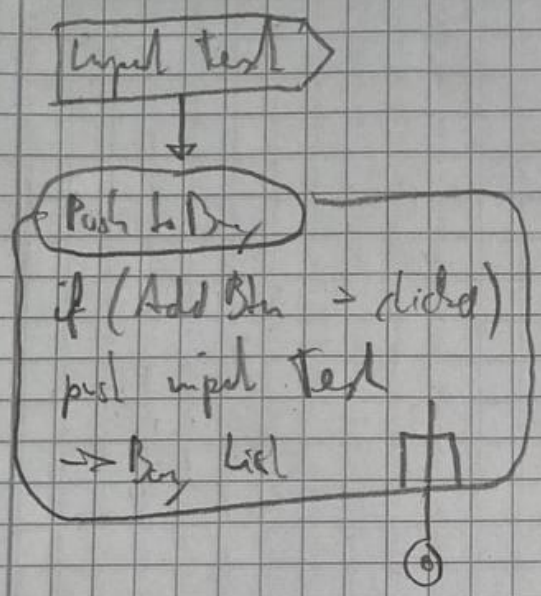 input text
Push to Buy
if (Add Btn → clicked)
push input Text
→ Buy List